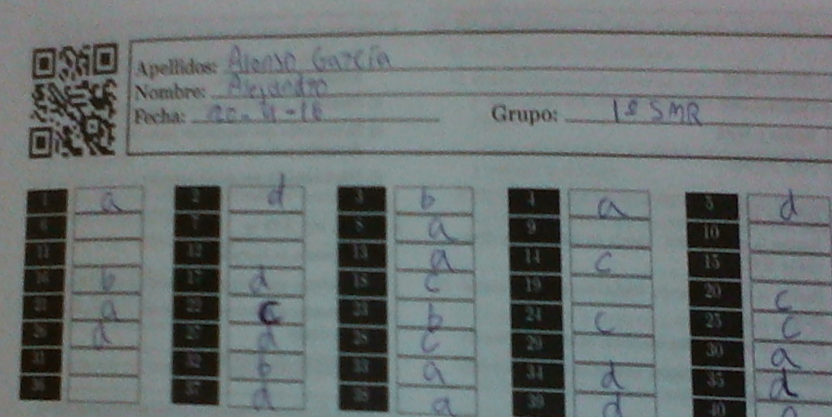 Apellidos: Alonso García
Nombre: Alejandro
Fecha: Grupo: 1º SMR
1 a 2 d 3 b 4 a 5 d
6 7 8 a 9 10
11 12 13 a 14 c 15
16 b 17 d 18 c 19 20 c
21 a 22 c 23 b 24 c 25 c
26 d 27 a 28 c 29 30 a
31 32 b 33 a 34 d 35 d
36 37 d 38 a 39 d 40 a